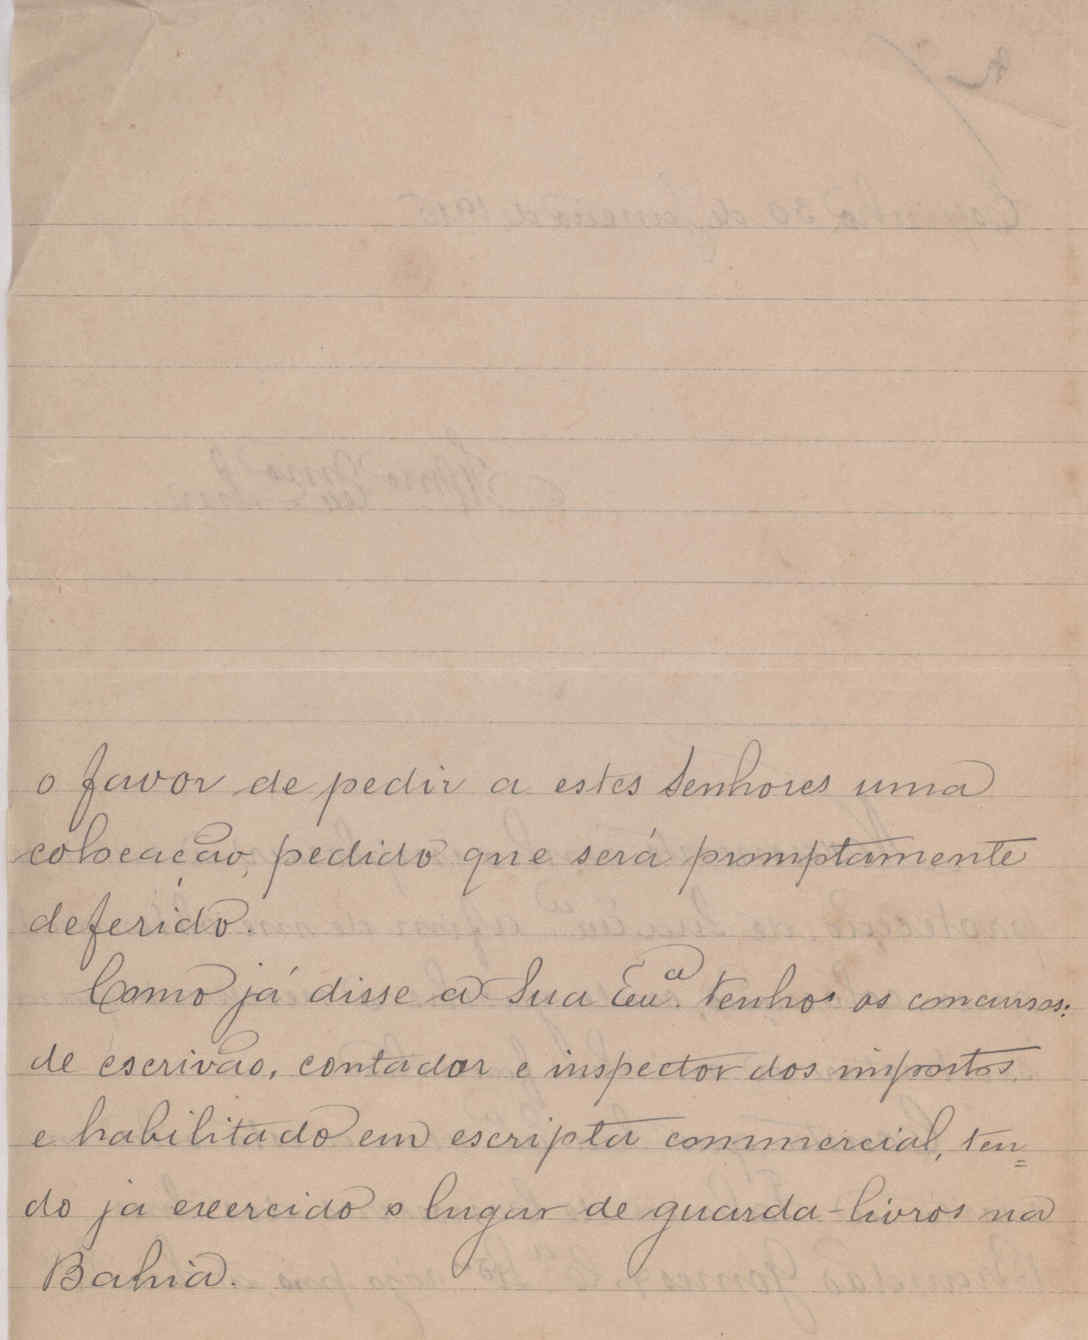 o favor de pedir a estes Senhores uma
colocação, pedido que será promptamente
deferido.
Como já disse a Sua Exª. tenho os concursos:
de escrivão, contador e inspector dos impostos
e habilitado em escripta commercial, ten=
do ja exercido o lugar de guarda-livros na
Bahia.